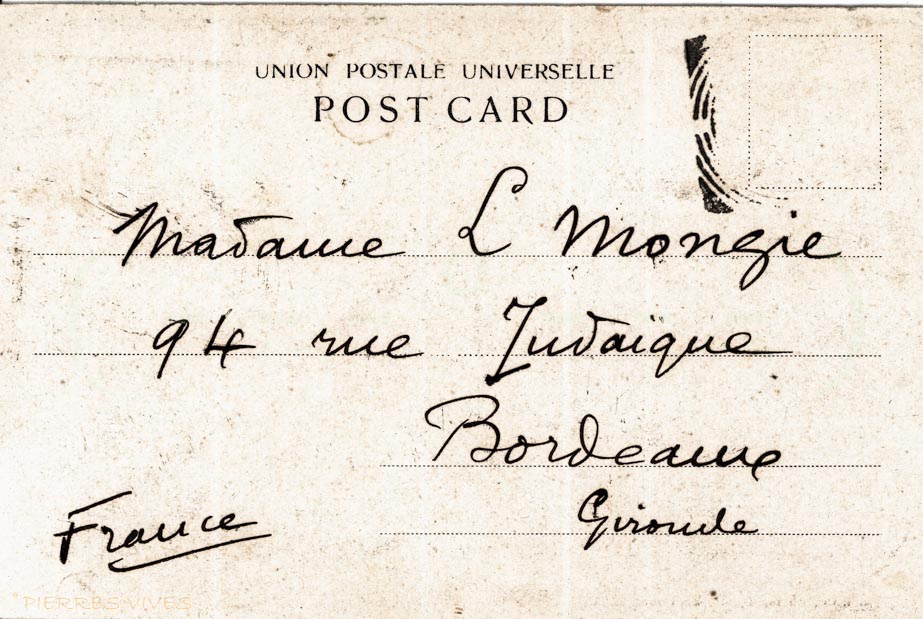 UNION POSTALE UNIVERSELLE
POST CARD
Madame L Mongie
94 rue Judaique
Bordeaux
Gironde
France
PIERRES VIVES